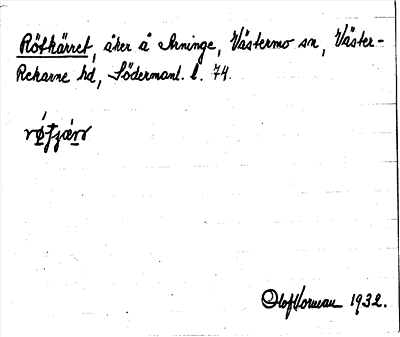 Rötkärret, åker å Arninge, Västermo sn, Väster-
Rekarne hd, Södermanl. l. 74.
Olof Norman 1932.